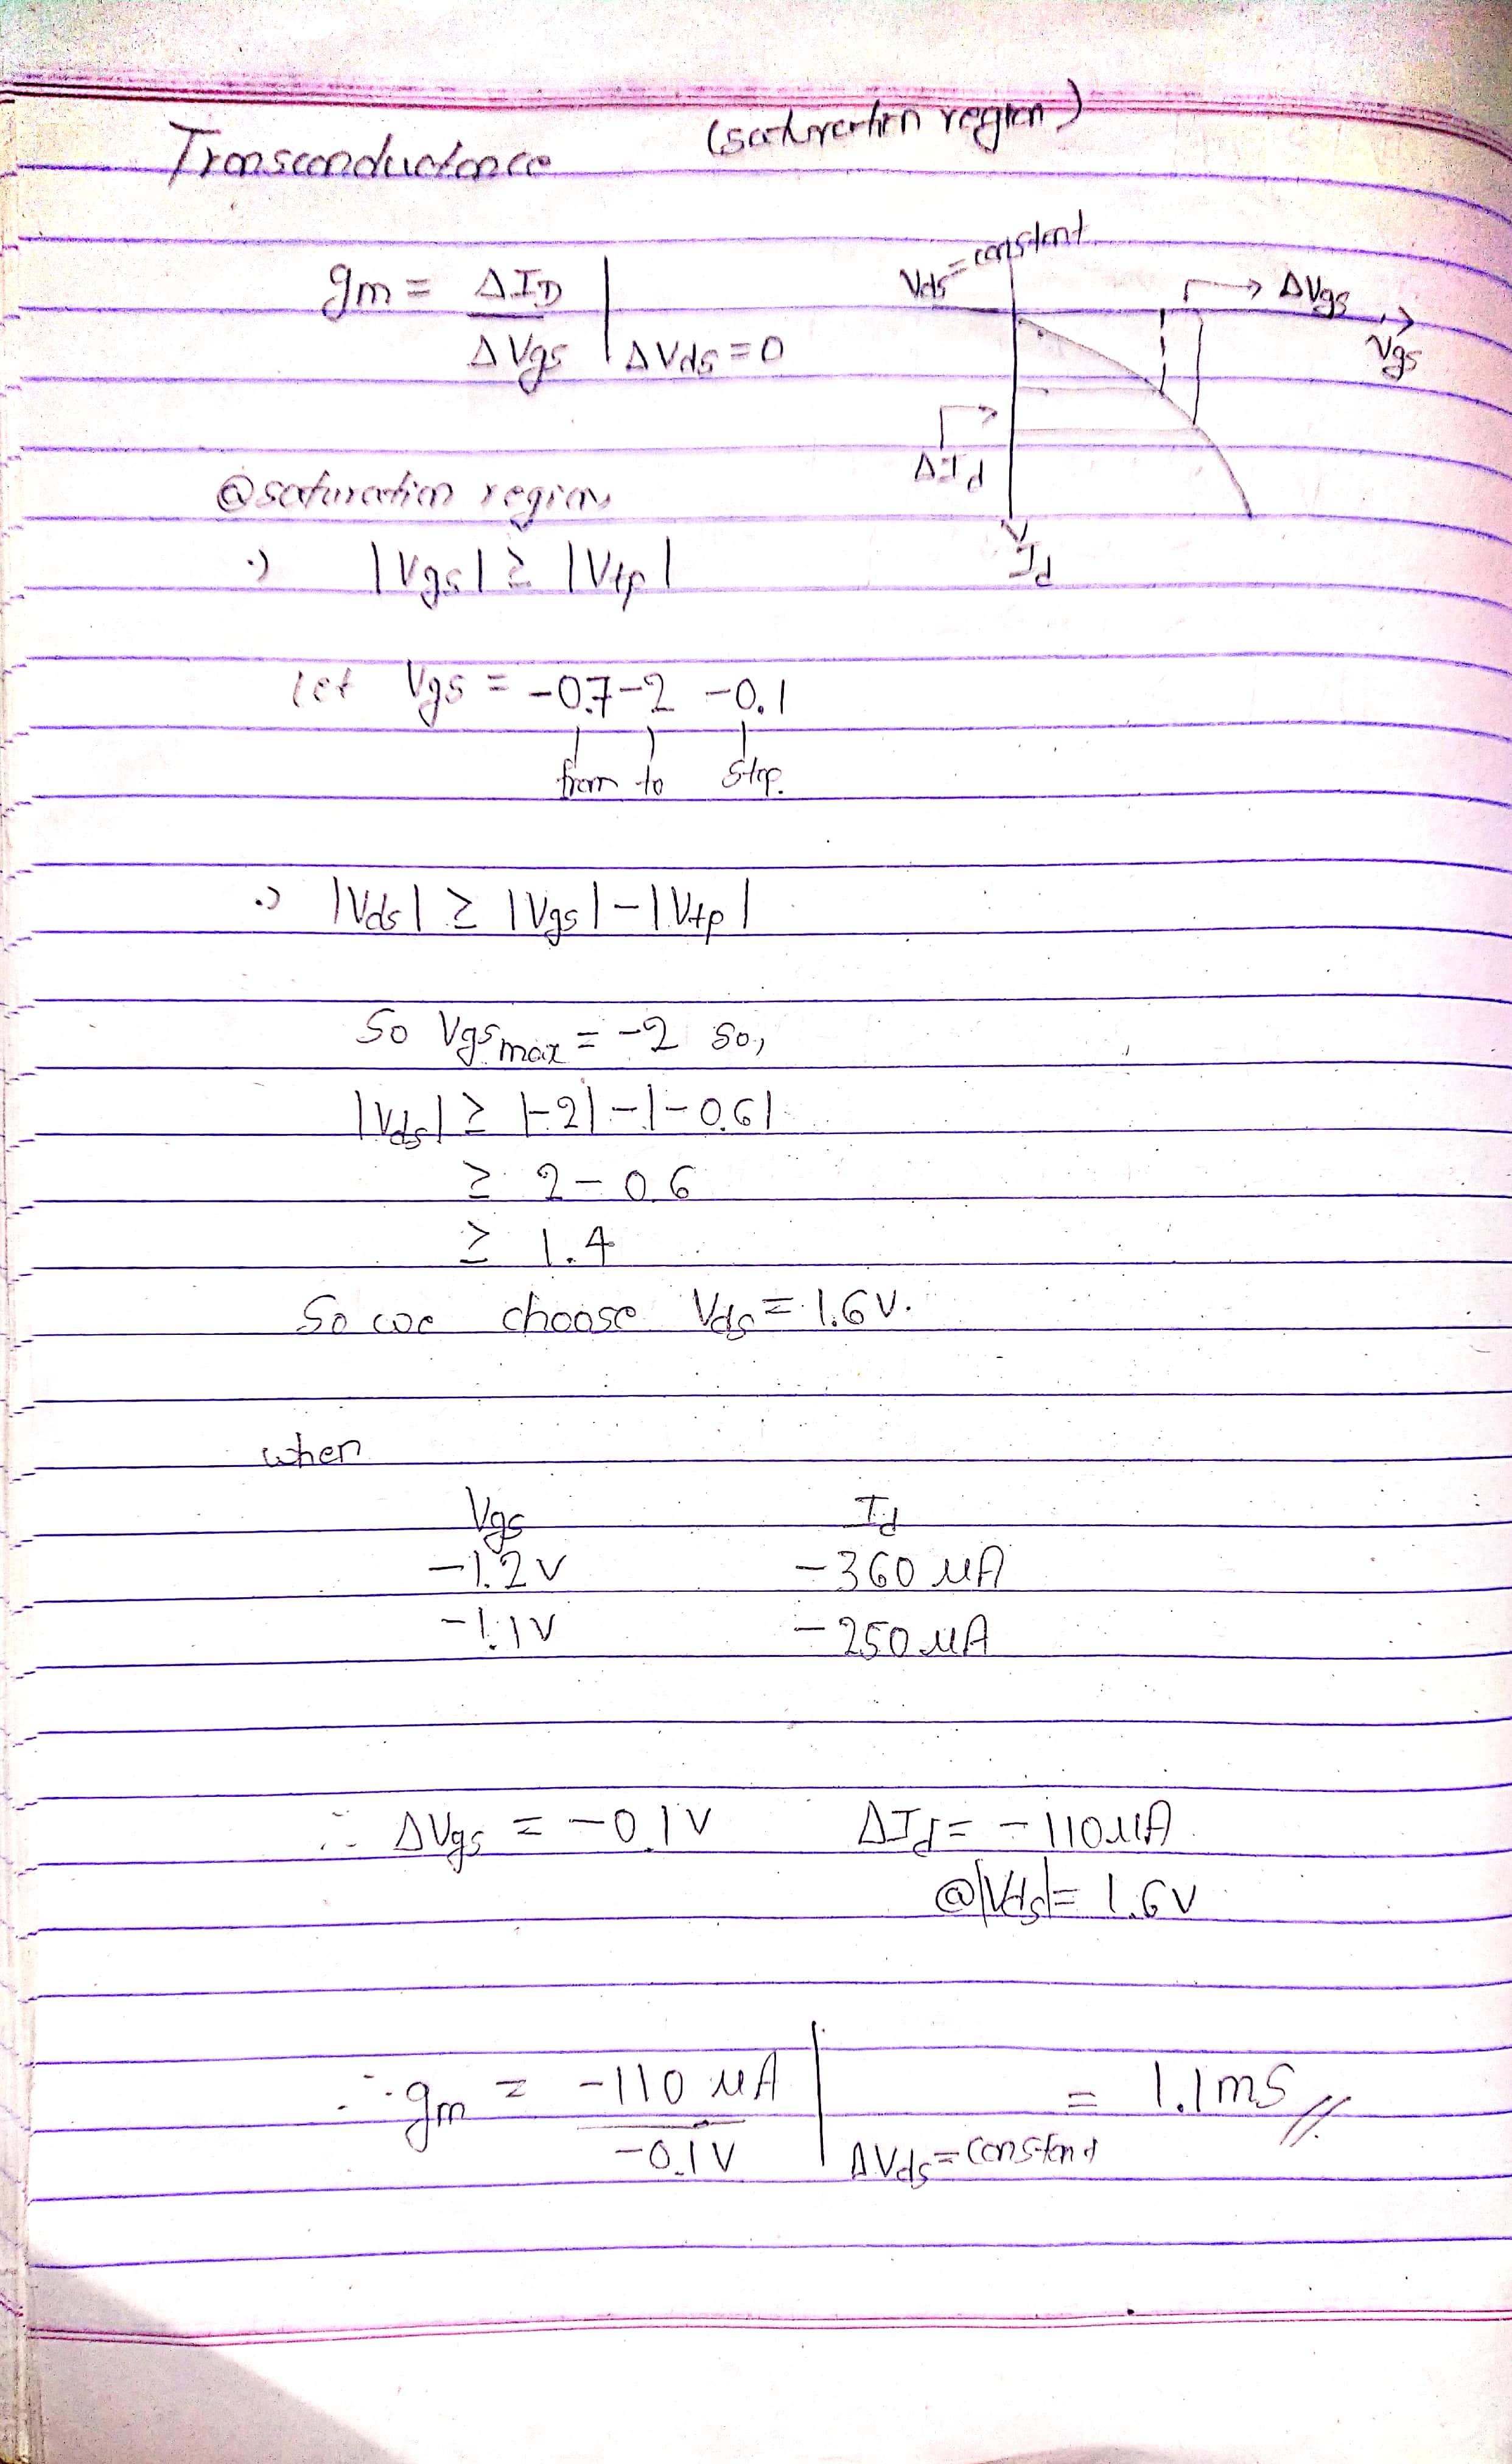 Transconductance (saturation region)
gm = ΔID / ΔVgs | ΔVds = 0
Vds = constant
ΔVgs
Vgs
ΔId
Id
@saturation region
·) |Vgs| ≥ |Vtp|
let Vgs = -0.7 -2 -0.1
from to step.
·) |Vds| ≥ |Vgs| - |Vtp|
So Vgsmax = -2 so,
|Vds| ≥ |-2| - |-0.6|
≥ 2 - 0.6
≥ 1.4
So we choose Vds = 1.6V.
when
Vgs Id
-1.2V -360 μA
-1.1V -250 μA
∴ ΔVgs = -0.1V ΔId = -110μA
@|Vds| = 1.6V
∴ gm = -110 μA / -0.1V | ΔVds = constant = 1.1mS //